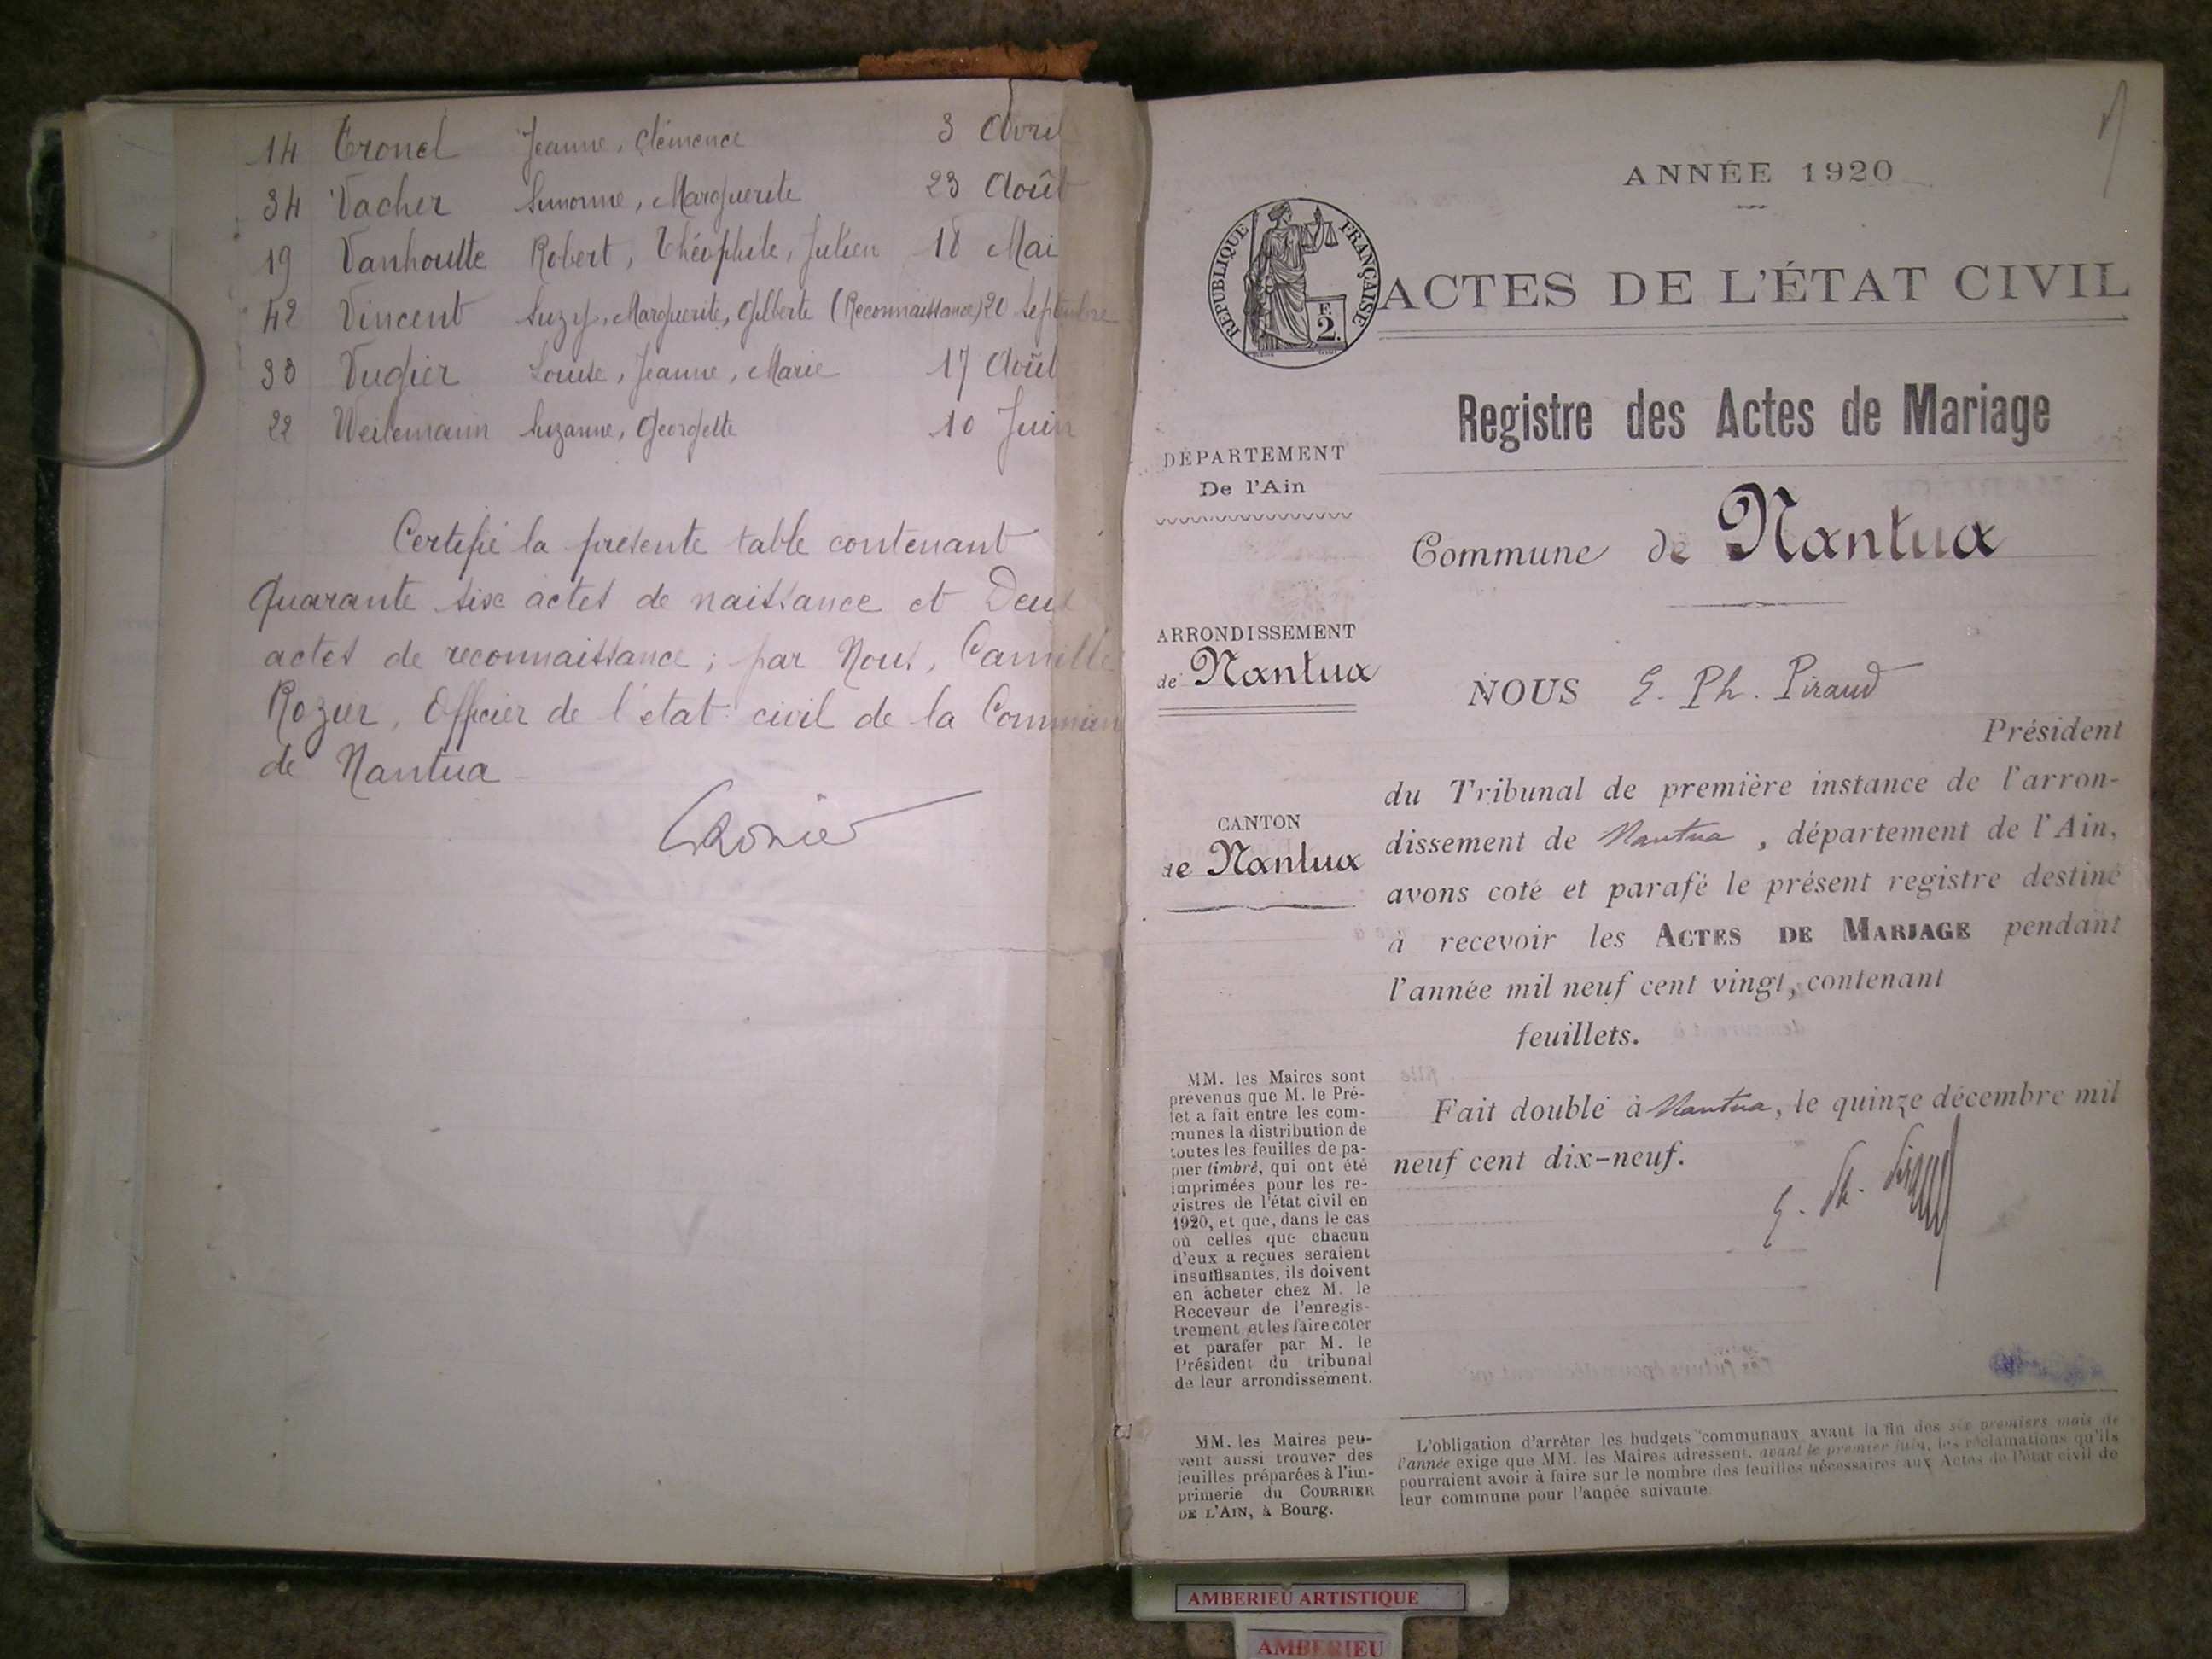 14 Tronel Jeanne, Clémence 3 Avril
34 Vacher Simonne, Marguerite 23 Août
19 Vanhoutte Robert, Théophile, Julien 18 Mai
42 Vincent Suzy, Marguerite, Gilberte (Reconnaissance) 20 Septembre
33 Vugier Louise, Jeanne, Marie 17 Août
22 Weilemann Suzanne, Georgette 10 Juin
Certifié la présente table contenant
Quarante six actes de naissance et Deux
actes de reconnaissance ; par Nous, Camille
Rozier, Officier de l'état civil de la Commune
de Nantua
CRozier
ANNÉE 1920
RÉPUBLIQUE FRANÇAISE
E.
2.
ACTES DE L'ÉTAT CIVIL
Registre des Actes de Mariage
DÉPARTEMENT
De l'Ain
Commune de Nantua
ARRONDISSEMENT
de Nantua
NOUS E. Ph. Piraud
Président
du Tribunal de première instance de l'arron-
dissement de Nantua, département de l'Ain,
avons coté et parafé le présent registre destiné
à recevoir les ACTES DE MARIAGE pendant
l'année mil neuf cent vingt, contenant
feuillets.
CANTON
de Nantua
Fait double à Nantua, le quinze décembre mil
neuf cent dix-neuf.
E. Ph. Piraud
MM. les Maires sont
prévenus que M. le Pré-
fet a fait entre les com-
munes la distribution de
toutes les feuilles de pa-
pier timbré, qui ont été
imprimées pour les re-
gistres de l'état civil en
1920, et que, dans le cas
où celles que chacun
d'eux a reçues seraient
insuffisantes, ils doivent
en acheter chez M. le
Receveur de l'enregis-
trement et les faire coter
et parafer par M. le
Président du tribunal
de leur arrondissement.
MM. les Maires peu-
vent aussi trouver des
feuilles préparées à l'im-
primerie du COURRIER
DE L'AIN, à Bourg.
L'obligation d'arrêter les budgets communaux avant la fin des six premiers mois de
l'année exige que MM. les Maires adressent, avant le premier juin, les réclamations qu'ils
pourraient avoir à faire sur le nombre des feuilles nécessaires aux Actes de l'état civil de
leur commune pour l'année suivante.
AMBERIEU ARTISTIQUE
AMBERIEU